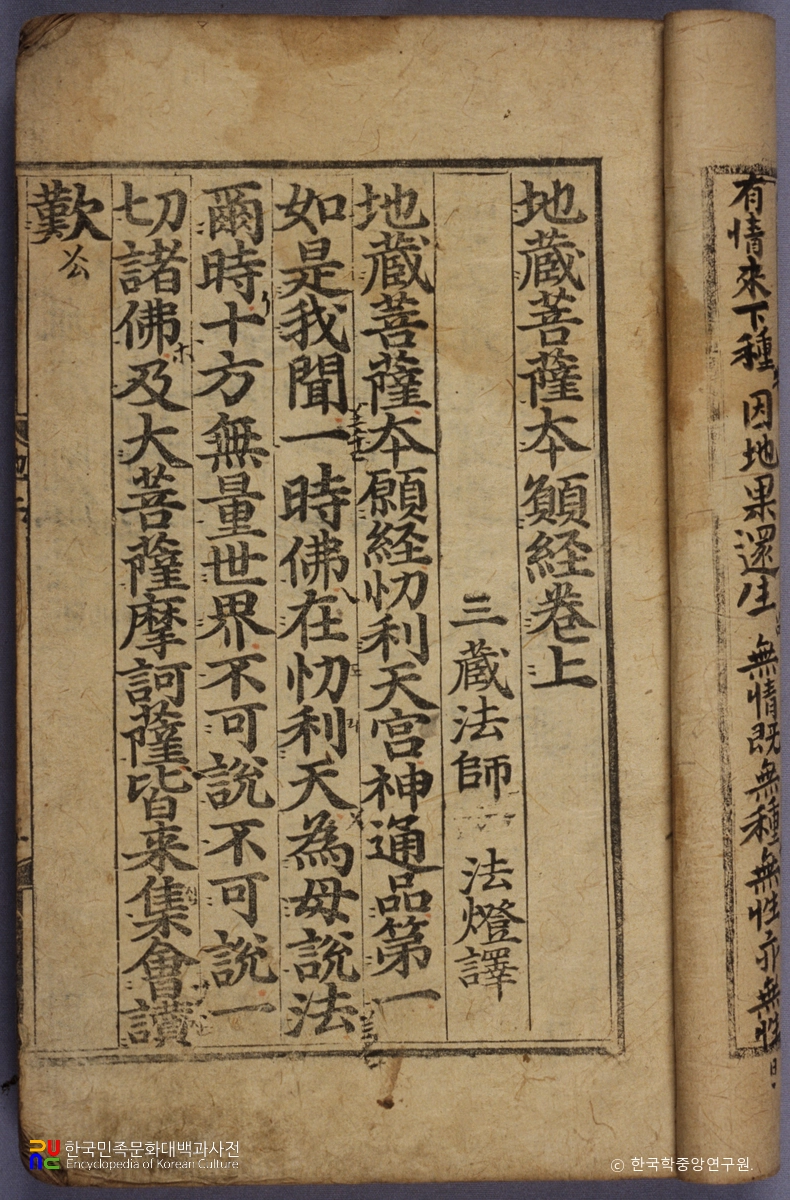 有情來下種 因地果還生 無情既無種 無性亦無性
地蔵菩薩本願経卷上
三蔵法師 法燈譯
地蔵菩薩本願経忉利天宮神通品第一
如是我聞一時佛在忉利天為母說法
爾時十方無量世界不可說不可說一
切諸佛及大菩薩摩訶薩皆来集會讀
歎
한국민족문화대백과사전
Encyclopedia of Korean Culture
© 한국학중앙연구원